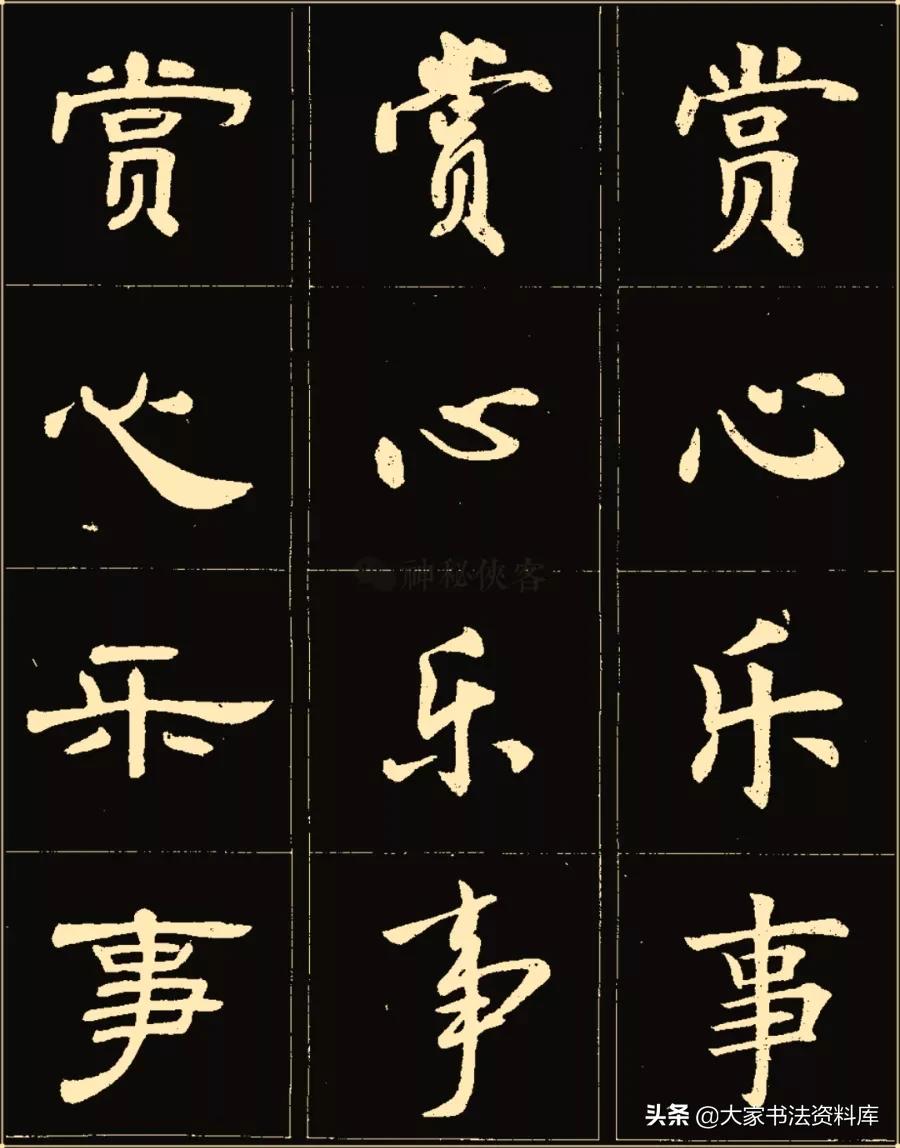 赏 赏 赏
心 心 心
乐 乐 乐
事 事 事
神秘侠客
头条 @大家书法资料库